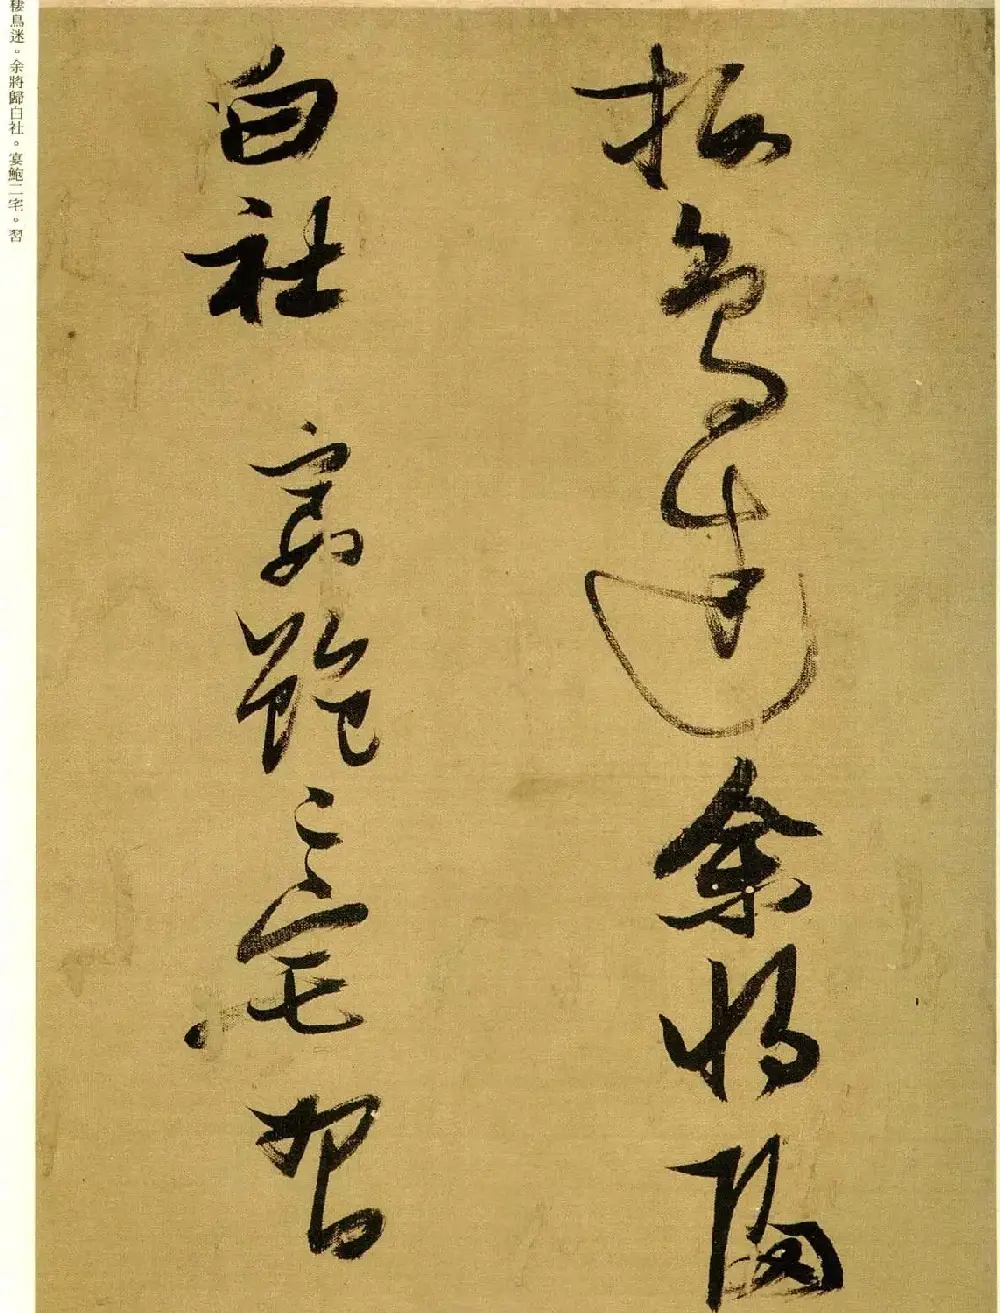 棲鳥迷余將歸
白社宴鮑二宅習
棲鳥迷。余將歸白社。宴鮑二宅。習